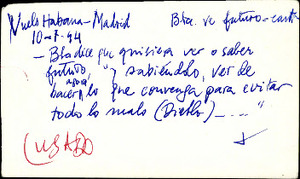 Vuelo Habana-Madrid Bta. ve futuro-cart
10-8-94
- Bta dice que quisiera ver o saber
futuro, "y sabiéndolo, ver de
hacer ahora lo que convenga para evitar
todo lo malo (Diethe) - .... "
(USADO